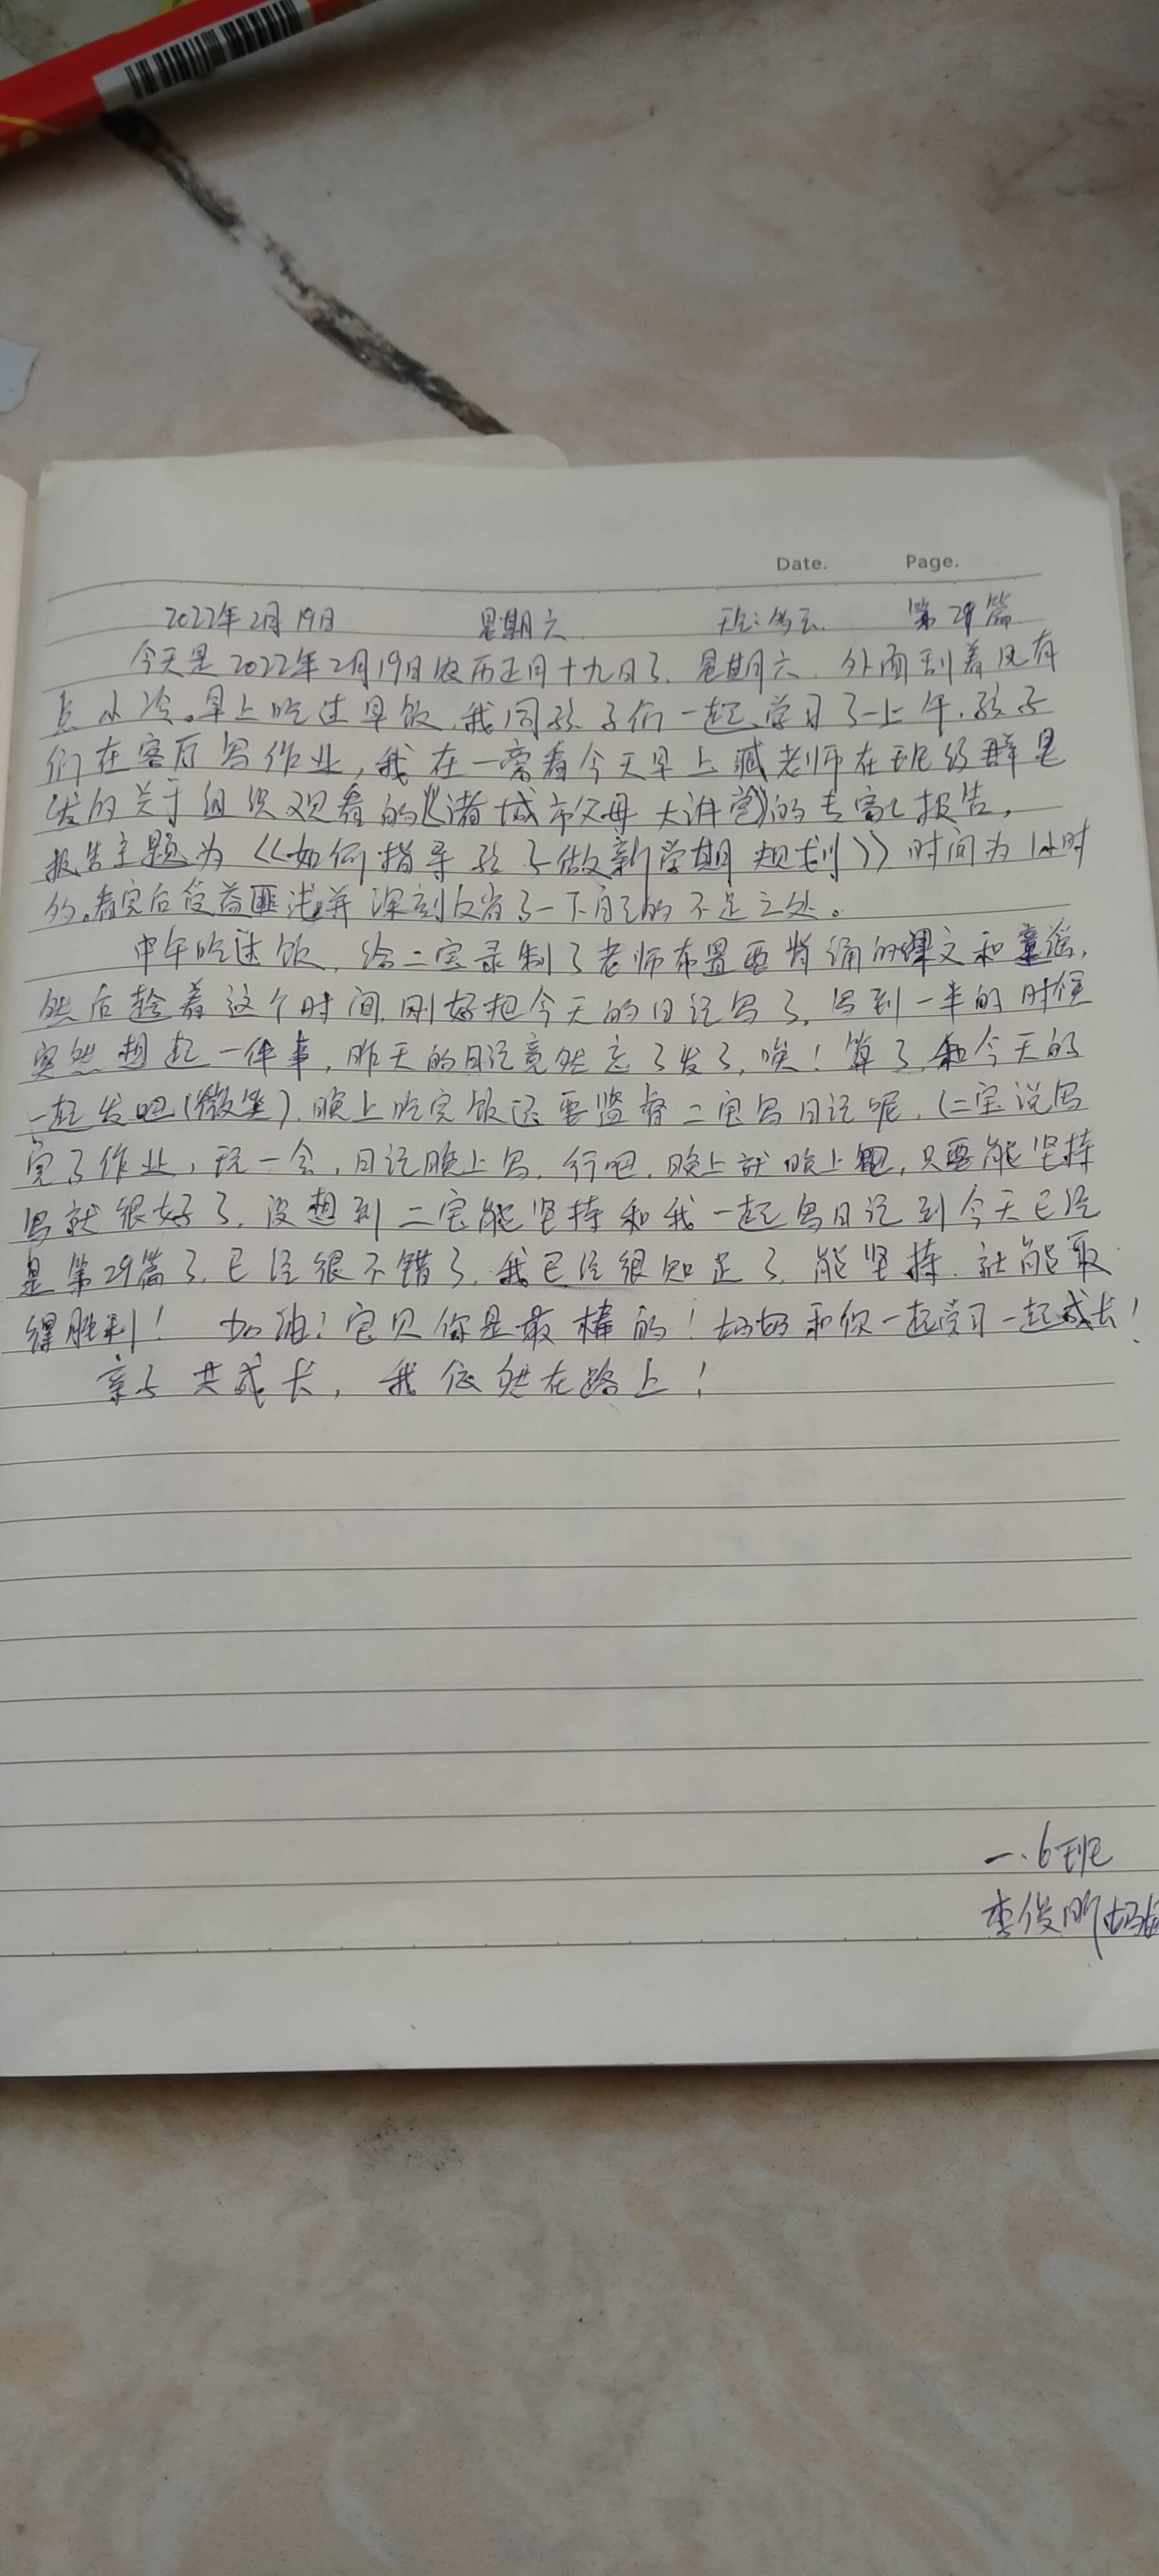 Date. Page.
2022年2月19日 星期六 天气:多云 第29篇
今天是2022年2月19日农历正月十九日了,星期六,外面刮着风有
点小冷。早上吃过早饭,我同孩子们一起学习了一上午,孩子
们在客厅写作业,我在一旁看今天早上臧老师在班级群里
发的关于组织观看的《诸城市父母大讲堂》的专家报告,
报告主题为《如何指导孩子做新学期规划》时间为1小时
的。看完后受益匪浅,并深刻反省了一下自己的不足之处。
中午吃过饭,给二宝录制了老师布置要背诵的课文和童谣,
然后趁着这个时间,刚好把今天的日记写了,写到一半的时候
突然想起一件事,昨天的日记竟然忘了发了,唉!算了,和今天的
一起发吧(微笑),晚上吃完饭还要监督二宝写日记呢,(二宝说写
完了作业,玩一会,日记晚上写,行吧,晚上就晚上吧,只要能坚持
写就很好了,没想到二宝能坚持和我一起写日记到今天已经
是第29篇了,已经很不错了,我已经很知足了,能坚持,就能取
得胜利! 加油!宝贝你是最棒的!妈妈和你一起学习一起成长!
亲子共成长,我依然在路上!
一.6班
李俊昕妈妈